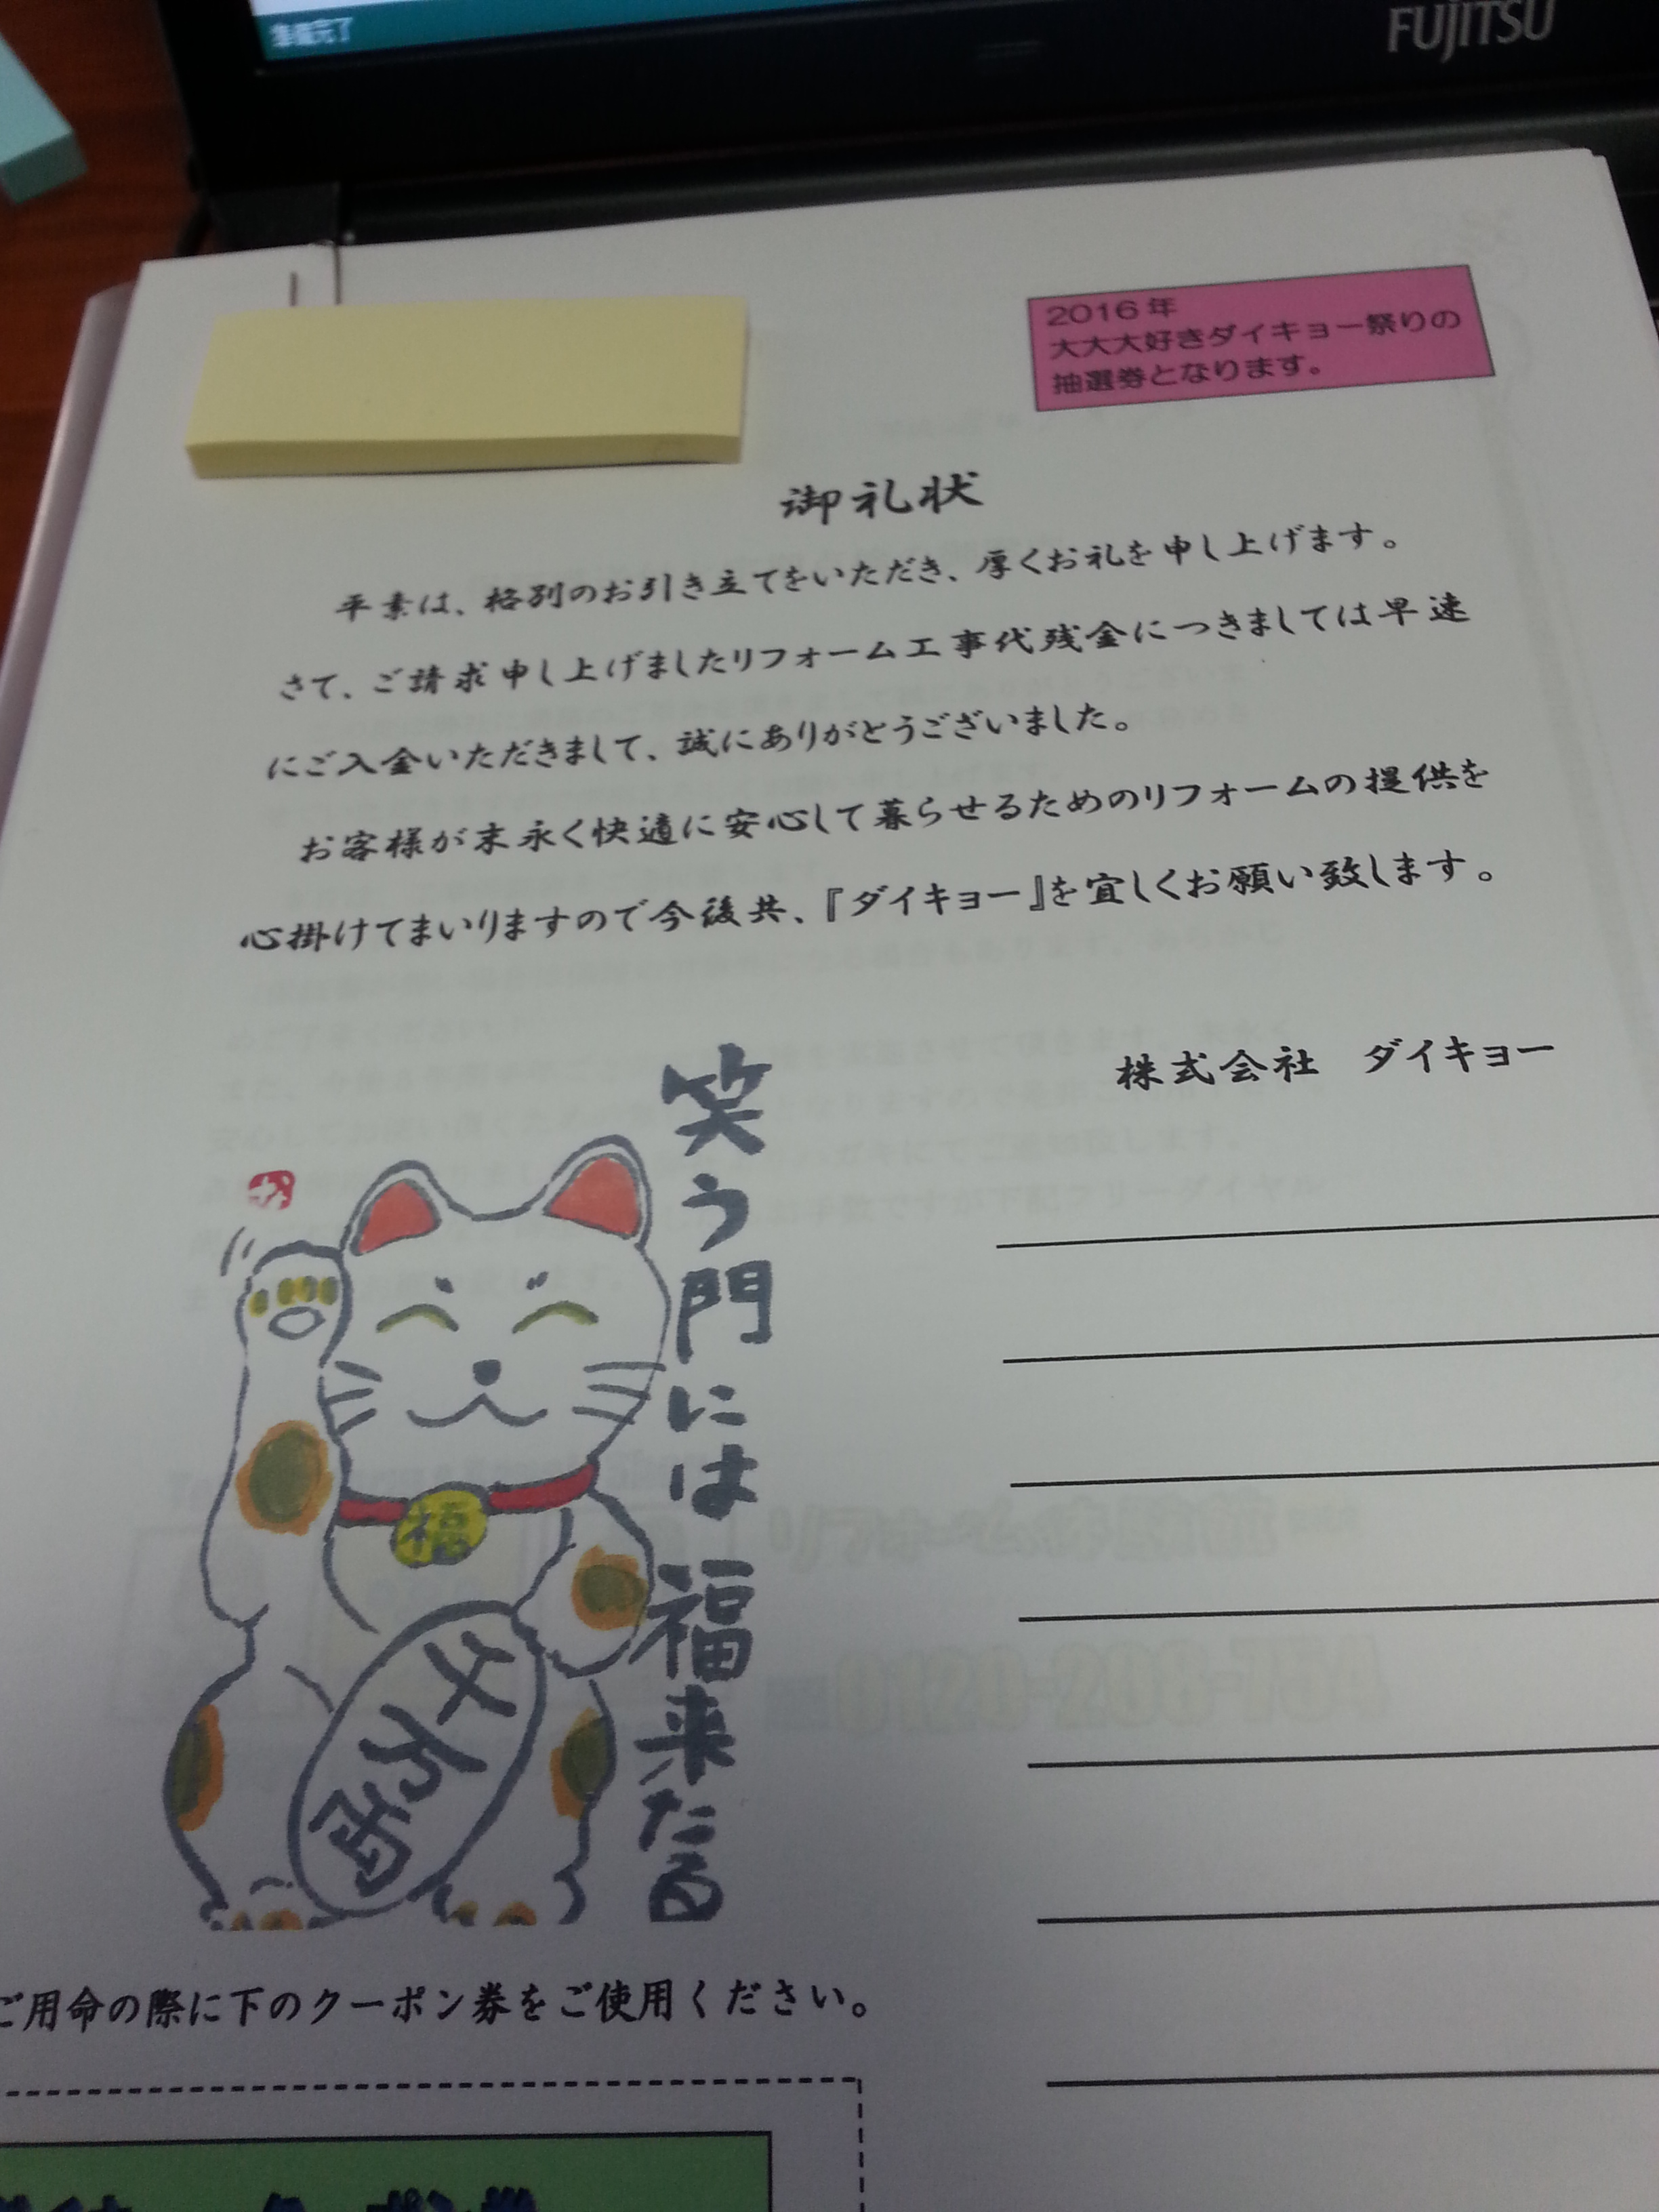 準備完了
FUJITSU
2016年
大大大好きダイキョー祭りの
抽選券となります。
御礼状
平素は、格別のお引き立てをいただき、厚くお礼を申し上げます。
さて、ご請求申し上げましたリフォーム工事代残金につきましては早速
にご入金いただきまして、誠にありがとうございました。
お客様が末永く快適に安心して暮らせるためのリフォームの提供を
心掛けてまいりますので今後共、『ダイキョー』を宜しくお願い致します。
株式会社 ダイキョー
笑う門には福来たる
福
ご用命の際に下のクーポン券をご使用ください。